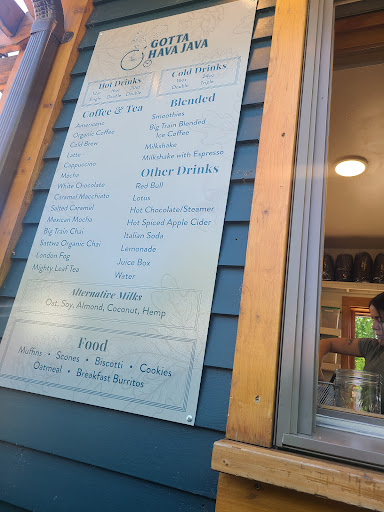 GOTTA
HAVA JAVA
Hot Drinks
12oz 16oz 20oz
Single Double Double
Cold Drinks
16oz 24oz
Double Triple
Coffee & Tea
Americano
Organic Coffee
Cold Brew
Latte
Cappuccino
Mocha
White Chocolate
Caramel Macchiato
Salted Caramel
Mexican Mocha
Big Train Chai
Sattwa Organic Chai
London Fog
Mighty Leaf Tea
Blended
Smoothies
Big Train Blended
Ice Coffee
Milkshake
Milkshake with Espresso
Other Drinks
Red Bull
Lotus
Hot Chocolate/Steamer
Hot Spiced Apple Cider
Italian Soda
Lemonade
Juice Box
Water
Alternative Milks
Oat, Soy, Almond, Coconut, Hemp
Food
Muffins • Scones • Biscotti • Cookies
Oatmeal • Breakfast Burritos